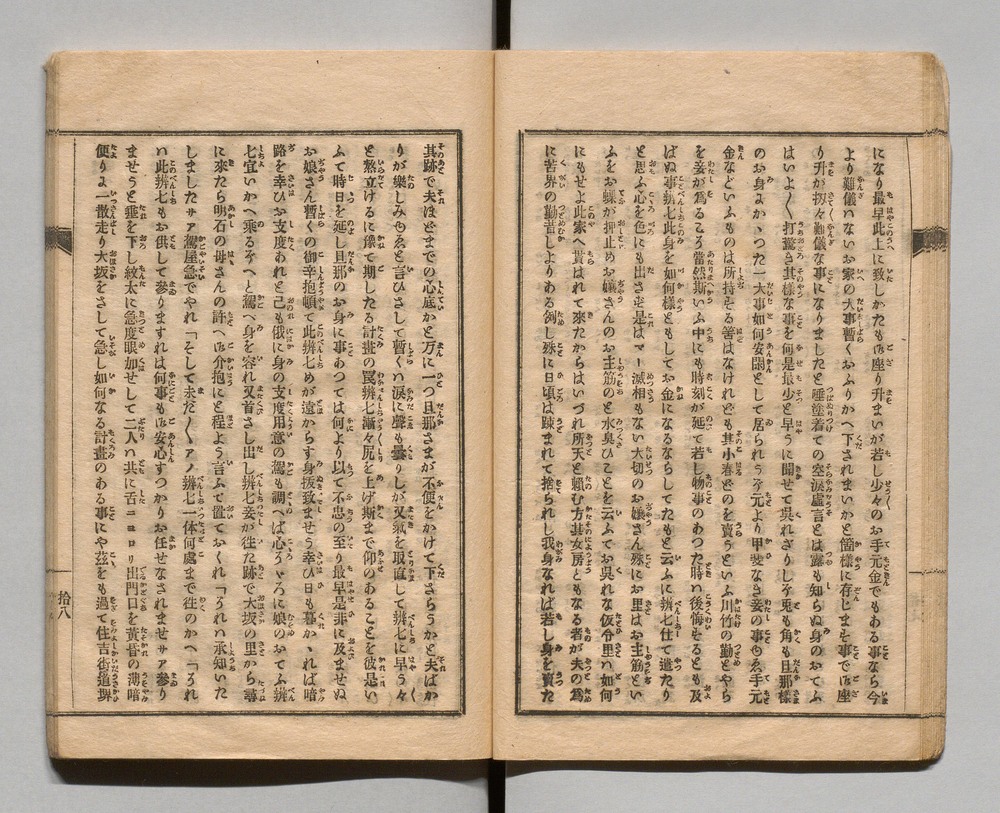 になり最早此上に致しかたも座り升まいが若し少々のお手元金でもある事なら今
より難儀いないお家の大事暫くおふりかへ下されまいかと箇様に存じまする事で座
り升が扨々難儀な事になりましたと唾塗着ての空涙虚言とは露も知らぬ身のおてふ
はいよ〳〵打驚き其様な事を何是最少と早うに聞せて呉れざりしぞ兎も角も旦那様
のお身よかゝつた一大事如何安閑として居られう手元より甲斐なき妾の事ゆゑ手元
金などいふものは所持する筈はなけれども其小春どのを賣うといふ川竹の勤とやら
を妾が爲るころ當然斯いふ中にも時刻が延て若し物事のあつた時い後悔をるとも及
ばぬ事辨七此身を如何様ともしてお金になるならしてたもと云ふに辨七仕て遣たり
と思ふ心を色にも出さず是はマー滅相もない大切のお孃さん殊にお里はお主筋とい
ふをお蝶が押止めお孃さんのお主筋のと水臭ひことを云ふてお呉れな仮令里い如何
にもせよ此家へ貰はれて來たからはいづれ所天と賴む方其女房ともなる者が夫の爲
に苦界の勤昔しよりある例し殊に日頃は踈まれて捨られし我身なれば若し身を賣た
其跡で夫ほどまでの心底かと万に一つ旦那さまが不便をかけて下さらうかと夫ばか
りが樂しみゆゑと言ひさして暫くい涙に聲も曇りしが又氣を取直して辨七に早う々
と熬立けるに豫て期したる計畫の罠辨七漸々尻を上げ斯まで仰のあることを彼是い
ふて時日を延し旦那のお身に事あつては何より以て不忠の至り最早是非に及ませぬ
お娘さん暫くの御辛抱頓て此辨七めが遠からず身拔致ませう幸ひ日も暮かゝれば暗
路を幸ひお支度あれと己も俄に身の支度用意の駕も調へば心うゝろに娘のおてふ辨
七宜いかへ乘るぞへと駕へ身を容れ又首さし出し辨七妾が徃た跡で大坂の里から尋
に來たら明石の母さんの許へ介抱にと程よう言ふて置ておくれ「うれい承知いた
しましたサア駕屋急でやれ「そして未だ〳〵アノ辨七一体何處まで徃のかへ「うれ
い此辨七もお供して參りますれは何事も安心すつかりお任せなされませサア參り
ませうと垂を下し紋太に急度眼加せして二人い共に舌ニヨロリ出門口を黄昏の薄暗
便りよ一散走り大坂をさして急し如何なる計畫のある事にや茲をも過て住吉街道堺
拾八